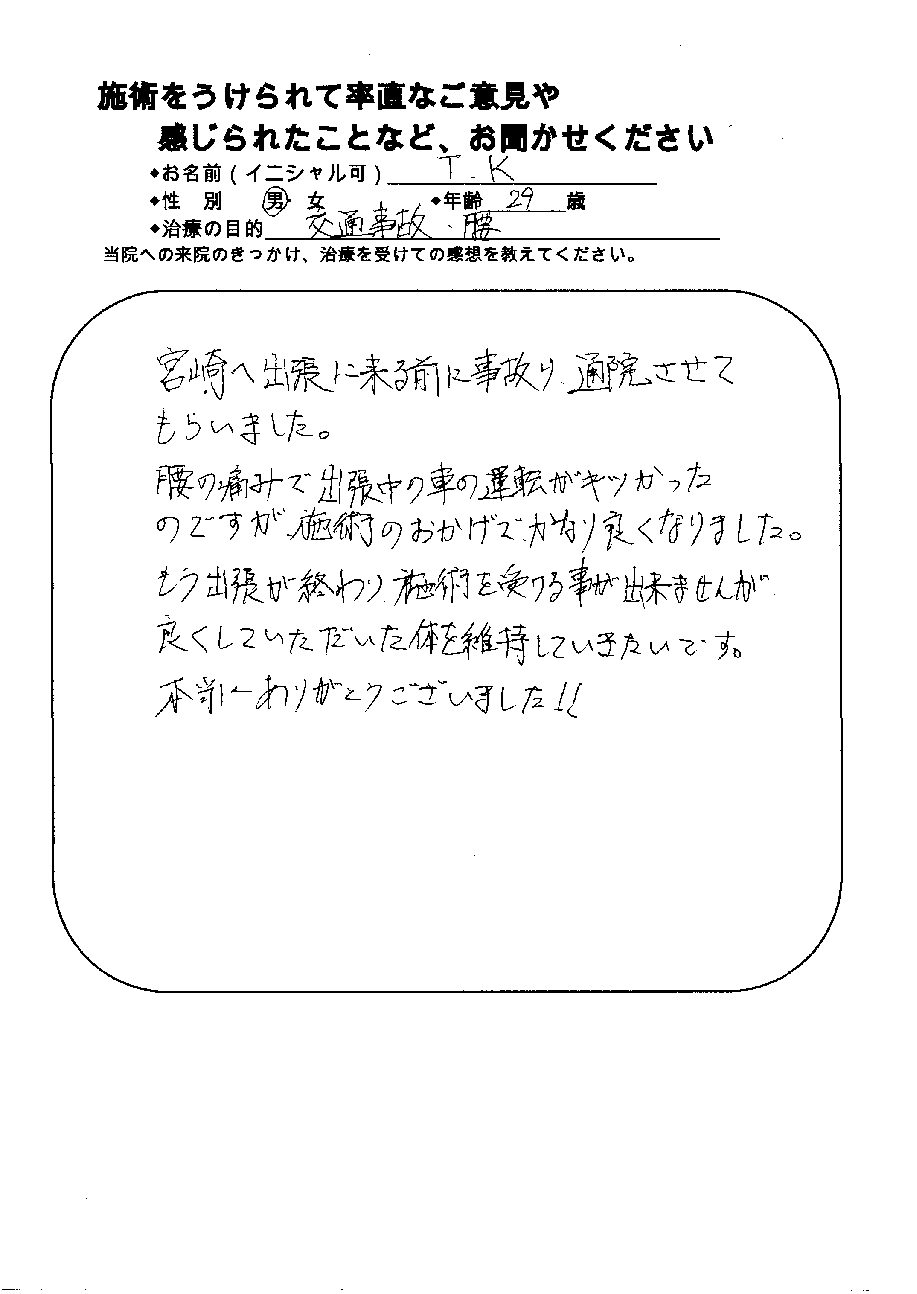 施術をうけられて率直なご意見や
感じられたことなど、お聞かせください
◆お名前(イニシャル可) T.K
◆性 別 男・女 ◆年齢 29 歳
◆治療の目的 交通事故・腰
当院への来院のきっかけ、治療を受けての感想を教えてください。
宮崎へ出張に来る前に事故り、通院させて
もらいました。
腰の痛みで出張中の車の運転がキツかった
のですが、施術のおかげで、かなり良くなりました。
もう出張が終わり、施術を受ける事が出来ませんが、
良くしていただいた体を維持していきたいです。
本当にありがとうございました!!